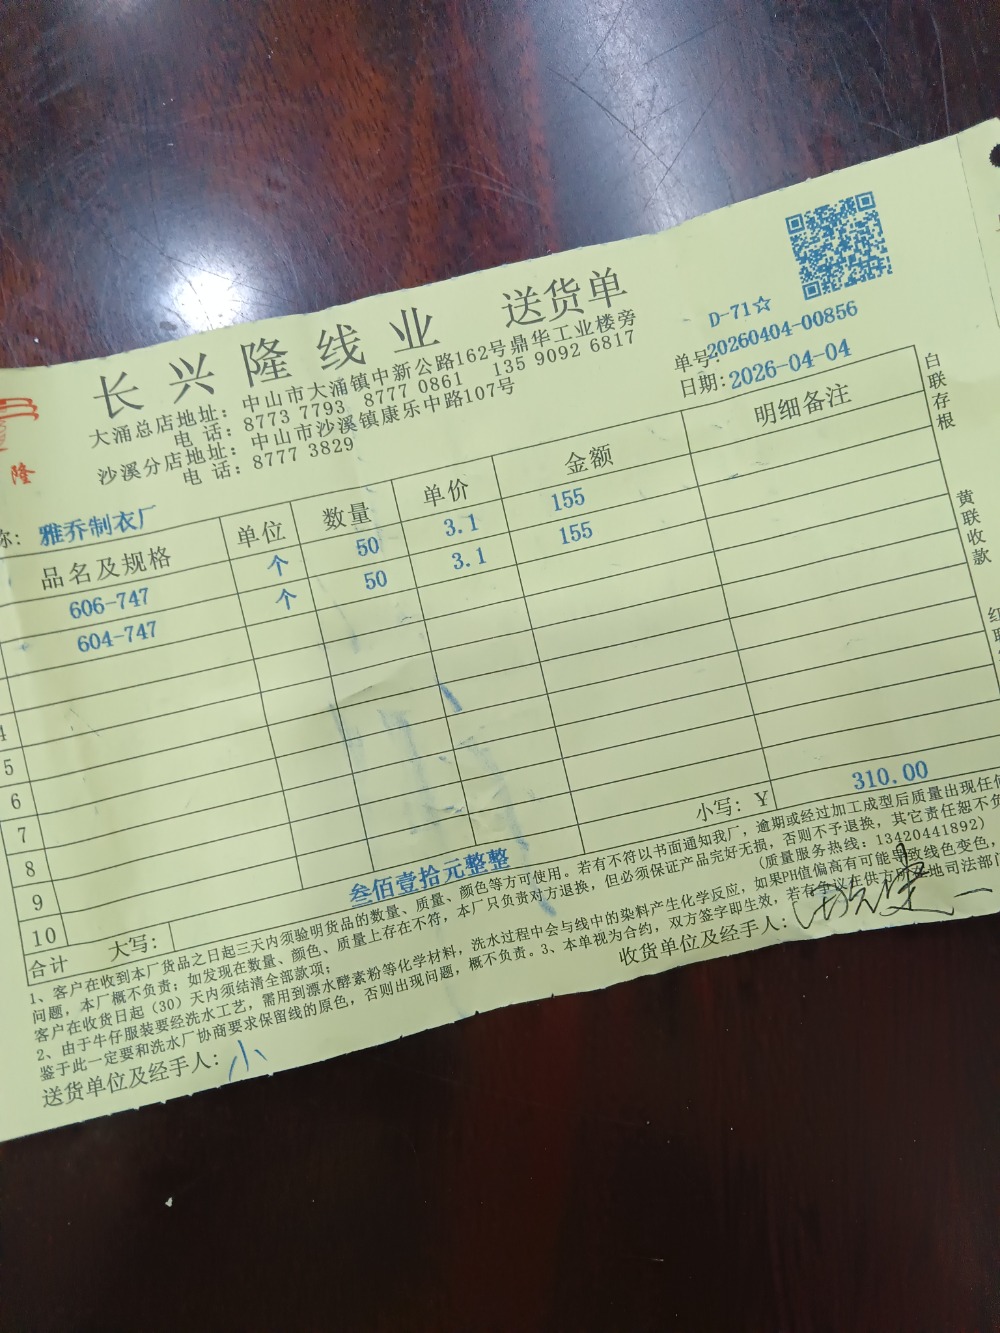 长兴隆线业 送货单
D-71☆
大涌总店地址: 中山市大涌镇中新公路162号鼎华工业楼旁
单号:20260404-00856
电 话: 8773 7793 8777 0861 135 9092 6817
日期:2026-04-04
沙溪分店地址: 中山市沙溪镇康乐中路107号
电 话: 8777 3829
隆
称: 雅乔制衣厂
品名及规格 单位 数量 单价 金额 明细备注
606-747 个 50 3.1 155
604-747 个 50 3.1 155
4
5
6
7
8
9
10
合计 大写: 叁佰壹拾元整整 小写: ¥ 310.00
白联存根
黄联收款
红联
1、客户在收到本厂货品之日起三天内须验明货品的数量、质量、颜色等方可使用。若有不符以书面通知我厂，逾期或经过加工成型后质量出现任何
问题，本厂概不负责；如发现在数量、颜色、质量上存在不符，本厂只负责对方退换，但必须保证产品完好无损，否则不予退换，其它责任恕不负
客户在收货日起（30）天内须结清全部款项；
(质量服务热线: 13420441892)
2、由于牛仔服装要经洗水工艺，需用到漂水酵素粉等化学材料，洗水过程中会与线中的染料产生化学反应，如果PH值偏高有可能导致线色变色，
鉴于此一定要和洗水厂协商要求保留线的原色，否则出现问题，概不负责。3、本单视为合约，双方签字即生效，若有争议在供方所在地司法部门
送货单位及经手人: 小
收货单位及经手人: